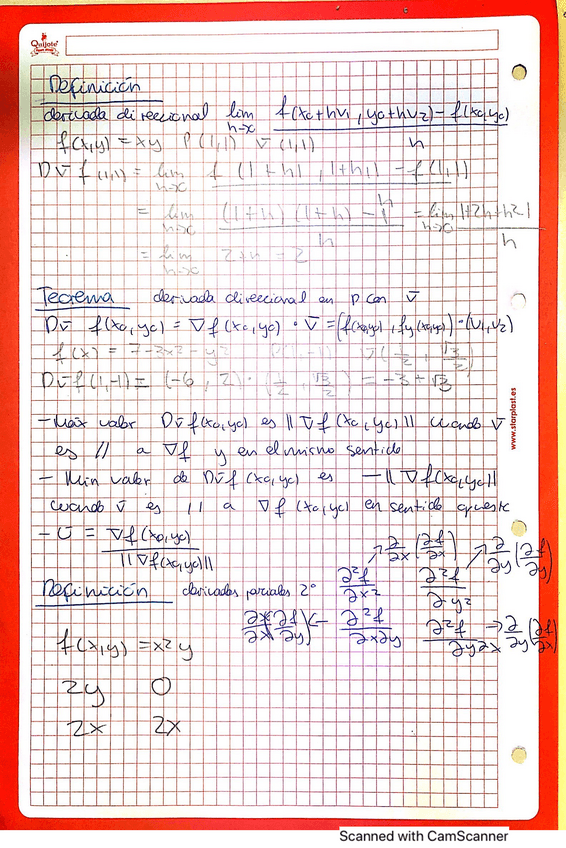 Quijote
Definición
derivada direccional lim f(x₀+hv₁, y₀+hv₂) - f(x₀,y₀)
h→0 h
f(x,y) = xy P(1,1) v̄(1,1)
Dv̄ f(1,1) = lim f(1+h1, 1+h1) - f(1,1)
h→0 h
= lim (1+h)(1+h) - 1 = lim 1+2h+h2-1
h→0 h h→0 h
= lim 2+h = 2
h→0
Teorema derivada direccional en P con v̄
Dv̄ f(x₀,y₀) = ∇f(x₀,y₀) · v̄ = (f(x₀,y₀), fy(x₀,y₀)) · (v₁,v₂)
f(x) = 7-3x²-y² (1,-1) v̄(1/2, √3/2)
Dv̄f(1,-1) = (-6, 2) · (1/2, √3/2) = -3+√3
- Máx valor Dv̄f(x₀,y₀) es ||∇f(x₀,y₀)|| cuando v̄
es // a ∇f y en el mismo sentido
- Min valor de Dv̄f(x₀,y₀) es -||∇f(x₀,y₀)||
cuando v̄ es // a ∇f(x₀,y₀) en sentido opuesto
- Ū = ∇f(x₀,y₀)
||∇f(x₀,y₀)||
→ ∂/∂x (∂f/∂x) → ∂/∂y (∂f/∂y)
Definición derivadas parciales 2º ∂²f/∂x² ∂²f/∂y²
∂/∂x (∂f/∂y) ← ∂²f/∂x∂y ∂²f/∂y∂x → ∂/∂y (∂f/∂x)
f(x,y) = x²y
2y 0
2x 2x
www.starplast.es
Scanned with CamScanner